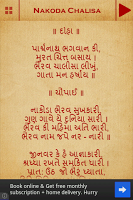 NAKODA CHALISA
|| દોહા ||
પાર્શ્વનાથ ભગવાન કી,
મુરત ચિત્ત બસાય |
ભૈરવ ચાલીસા લીખું,
ગાતા મન હર્ષાય ||
|| ચૌપાઈ ||
નાકોડા ભૈરવ સુખકારી,
ગુણ ગાયે યે દુનિયા સારી |
ભૈરવ કી મહિમા અતિ ભારી,
ભૈરવ નામ જપે નર - નારી ||
જીનવર કે હૈ આજ્ઞાકારી,
શ્રધ્ધા રખતે સમકિત ધારી |
પ્રાતઃ ઉઠ જો ભૈરૂ ધ્યાતા,
Book online & Get free monthly
subscription + home delivery. Hurry